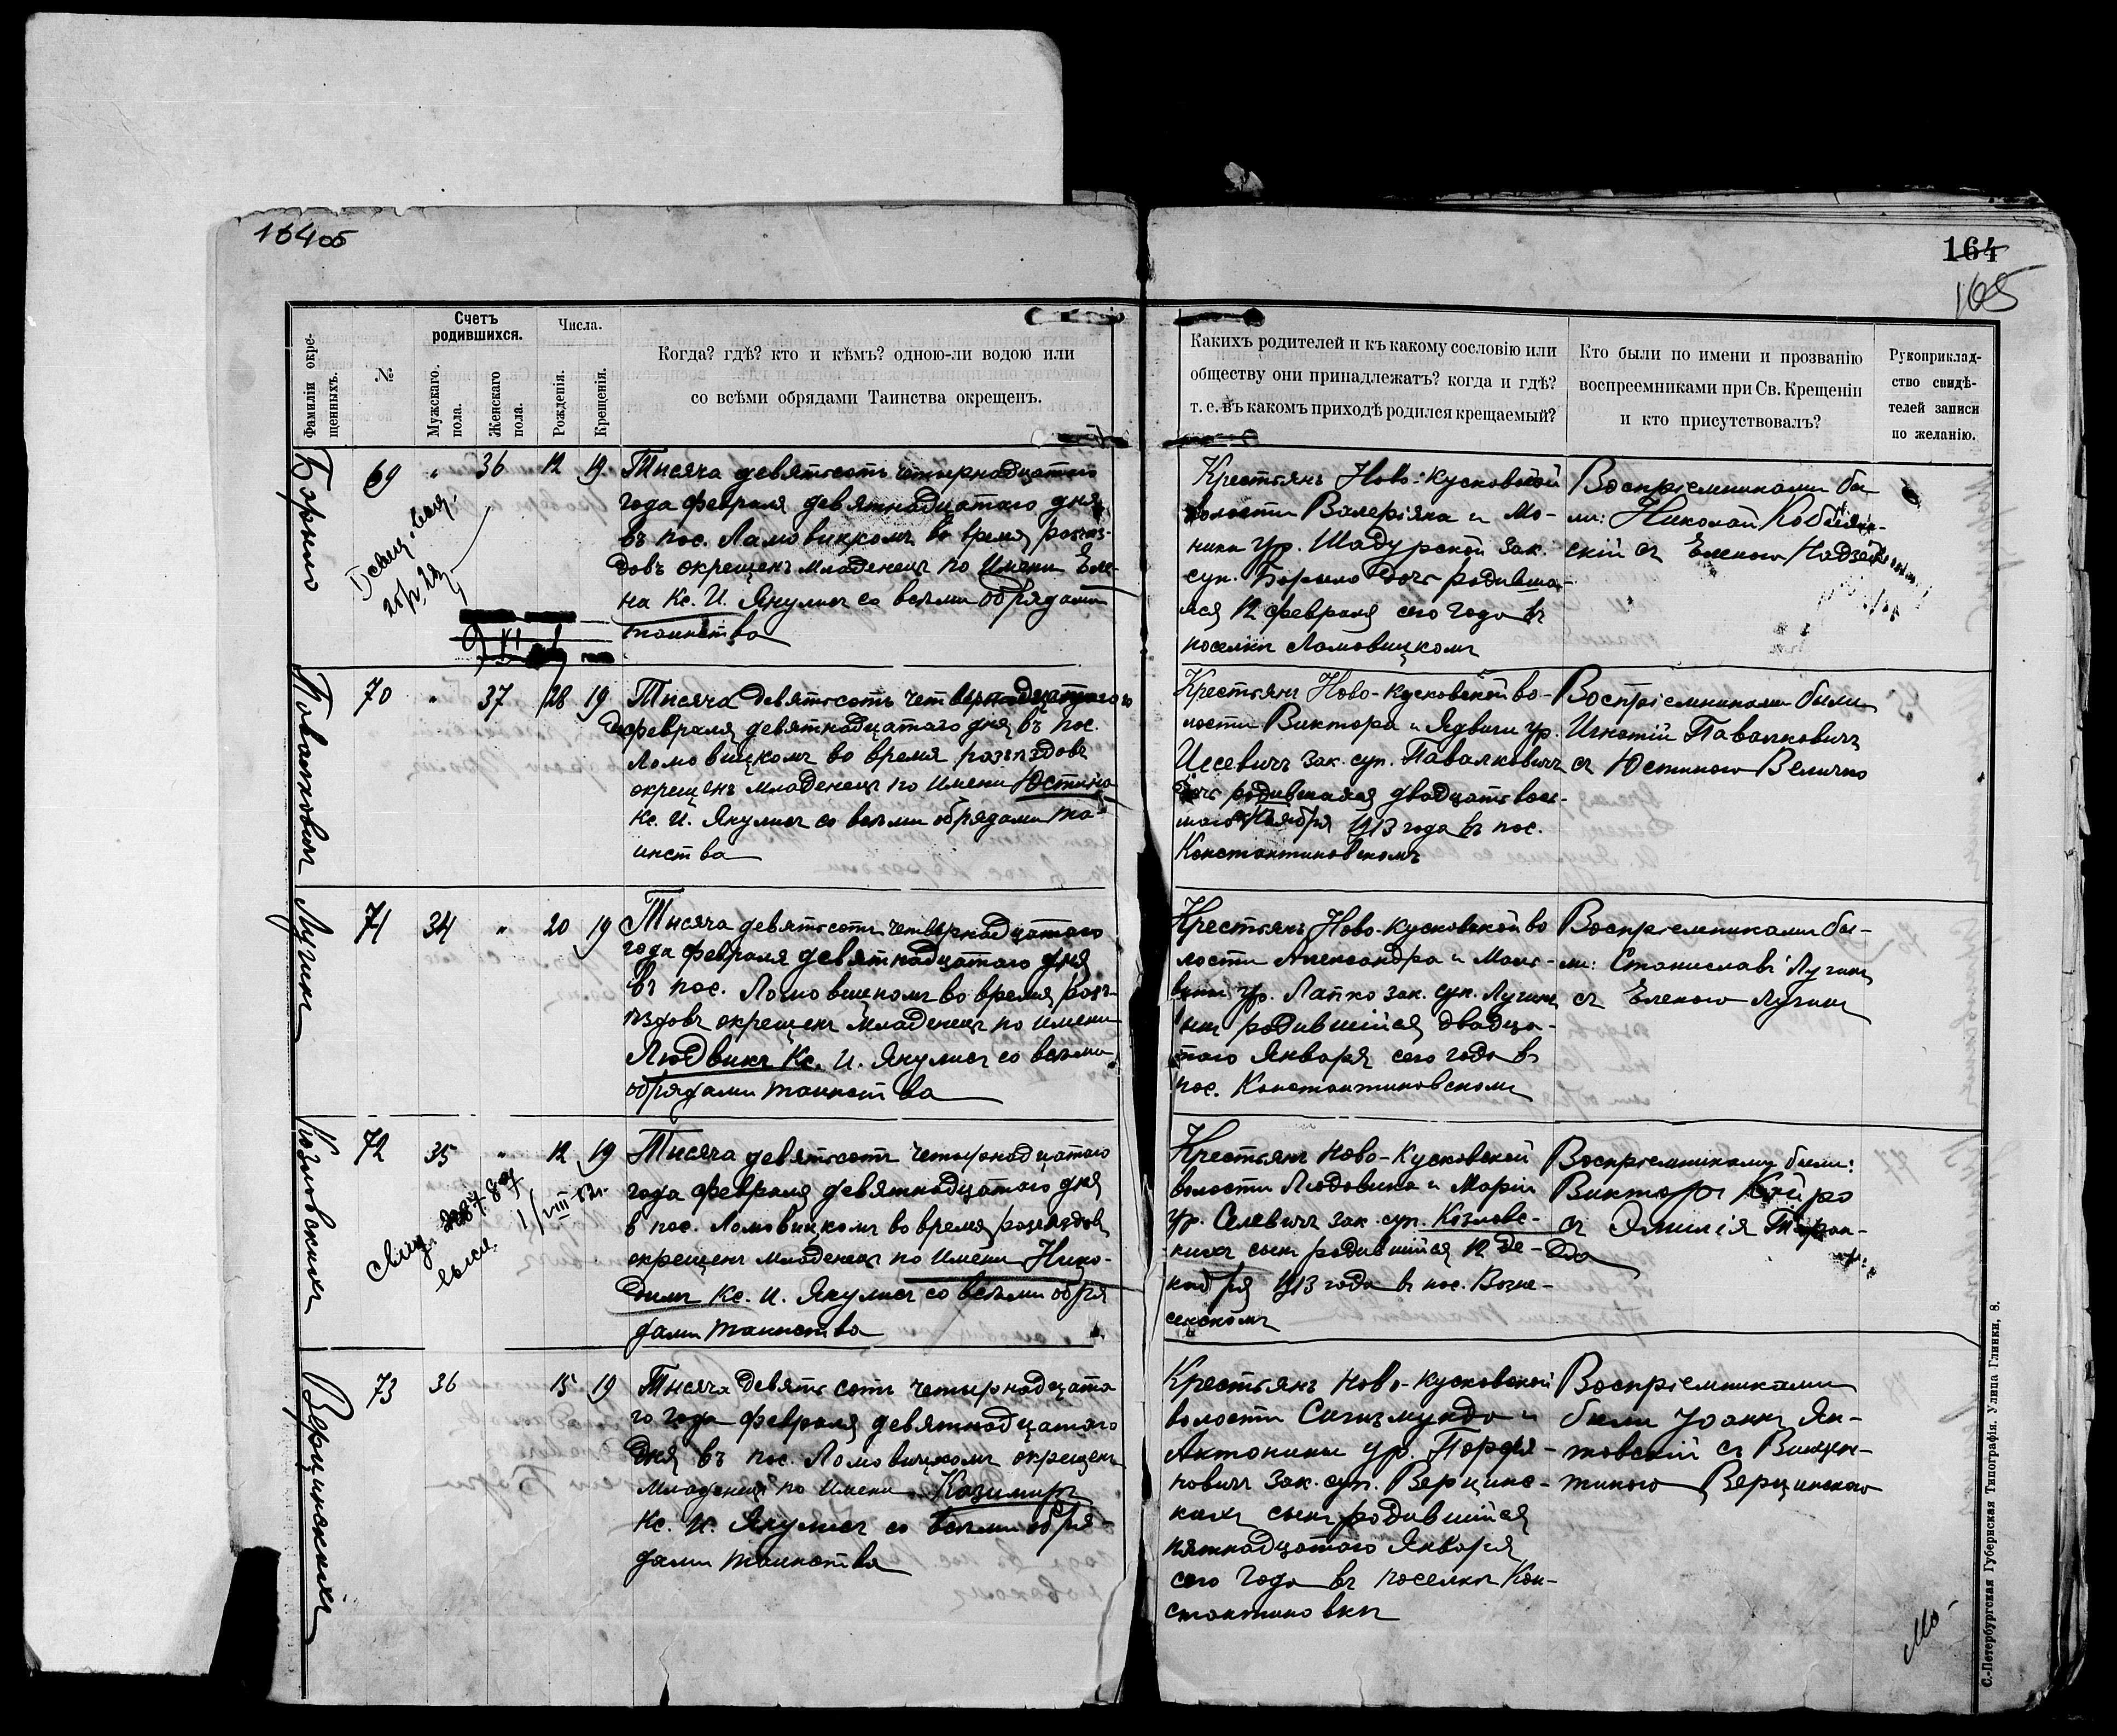 164об
164
165
Фамиліи окре-
щенныхъ.
№
Счетъ
родившихся.
Мужскаго.
пола.
Женскаго
пола.
Числа.
Рожденія.
Крещенія.
Когда? гдѣ? кто и кѣмъ? одною-ли водою или
со всѣми обрядами Таинства окрещенъ.
Какихъ родителей и къ какому сословію или
обществу они принадлежатъ? когда и гдѣ?
т. е. въ какомъ приходѣ родился крещаемый?
Кто были по имени и прозванію
воспреемниками при Св. Крещеніи
и кто присутствовалъ?
Рукоприклад-
ство свидѣ-
телей записи
по желанію.
Борыло
69 " 36 12 19
Тысяча девятьсотъ четырнадцатаго
года февраля девятнадцатаго дня
въ пос. Ломовицкомъ во время разъѣз-
довъ окрещенъ младенецъ по имени Еле-
на Кс. И. Якулисъ со всѣми обрядами
таинства
Крестьянъ Ново-Кусковской
волости Валеріяна и Мо-
ники ур. Шадурской зак.
суп. Борыло дочь родивша-
яся 12 февраля сего года въ
поселкѣ Ломовицкомъ
Воспріемниками бы
ли: Николай
скій съ Еленою
Поволковичъ
70 " 37 28 19
Тысяча девятьсотъ четвернадцатаго
февраля девятнадцатаго дня въ пос.
Ломовицкомъ во время разъѣздовъ
окрещенъ младенецъ по имени Юстина
Кс. И. Якулисъ со всѣми обрядами та-
инства
Крестьянъ Ново-Кусковской во-
лости Виктора и Ядвиги ур.
зак. суп. Павалковичъ
дочь родившаяся двадцать вось-
маго Ноября 1913 года въ пос.
Константиновскомъ
Воспріемниками были
Игнатій Павалковичъ
съ Юстиною Величко
Лугинъ
71 34 " 20 19
Тысяча девятьсотъ четвернадцатаго
года февраля девятнадцатаго дня
въ пос. Ломовицкомъ во время разъ-
ѣздовъ окрещенъ младенецъ по имени
Людвикъ Кс. И. Якулисъ со всѣми
обрядами таинства
Крестьянъ Ново-Кусковской во
лости Александра и
ур. Лапко зак. суп. Лугинъ
сынъ родившійся двадца-
таго Января сего года въ
пос. Константиновскомъ
Воспріемниками бы-
ли: Станиславъ Лугинъ
съ Еленою Лугинъ
Козловскихъ
72 35 " 12 19
Тысяча девятьсотъ четырнадцатаго
года февраля девятнадцатаго дня
в пос. Ломовицкомъ во время разъѣздовъ
окрещенъ младенецъ по имени Нико-
димъ Кс. И. Якулисъ со всѣми обря
дами таинства
Крестьянъ Ново-Кусковской
волости Людовика и Маріи
ур. Селевичъ зак. суп. Козловс-
кихъ сынъ родившійся 12 де-
кабря 1913 года въ пос. Возне-
сенскомъ
Воспріемниками были:
Викторъ
съ Эмилія
Верцинскихъ
73 36 15 19
Тысяча девять сотъ четырнадцата
го года февраля девятнадцатаго
дня въ пос. Ломовицкомъ окрещенъ
младенецъ по имени Казимиръ
Кс. И. Якулисъ со всѣми обря-
дами таинства
Крестьянъ Ново-Кусковской
волости Сигизмунда и
Антонины ур. Порфя-
новичъ зак. суп. Верцинс-
кихъ сынъ родившійся
пятнадцатаго Января
сего года въ поселкѣ Кон-
стантиновкѣ
Воспріемниками
были Іоаннъ Ян-
товскій съ Винцен-
тиною Верцинскою
С.-Петербургская Губернская Типографія. Улица Глинки, 8.